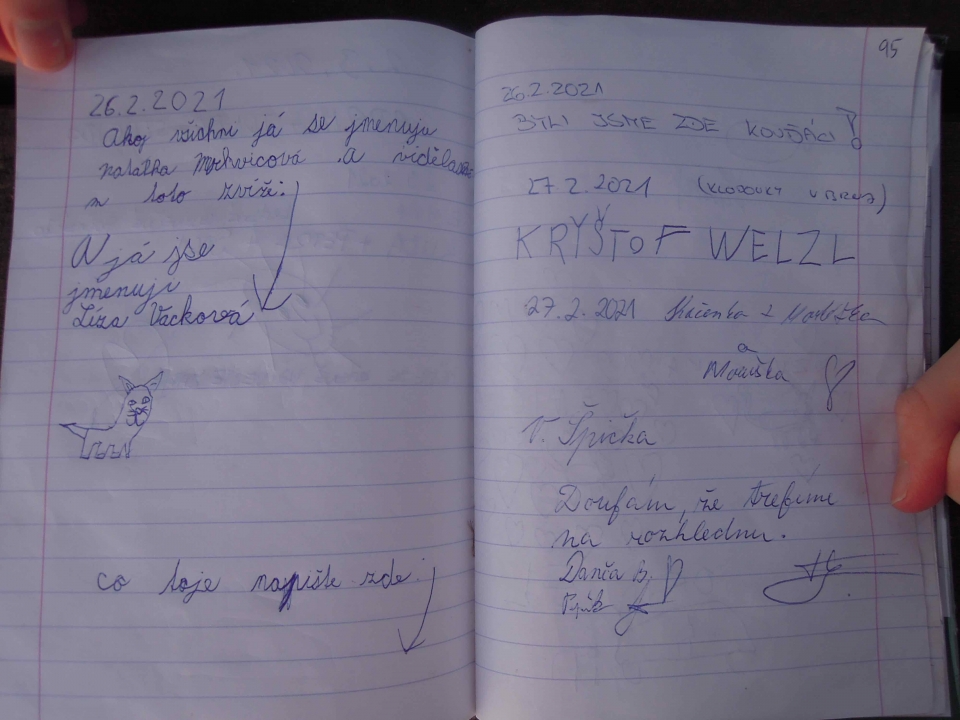 26.2.2021
Ahoj všichni já se jmenuju
natálka Mrhvicová .a viděla
toto zvíře:
A já jse
jmenuji
Líza Vacková
co toje napište zde:
95
26.2.2021
BYLI JSME ZDE KOUŤÁCI!
27.2.2021 (KLOBOUKY U BRNA)
KRYŠTOF WELZL
27.2.2021
a
V. Špička
Doufám, že trefíme
na rozhlednu.
Danča B.